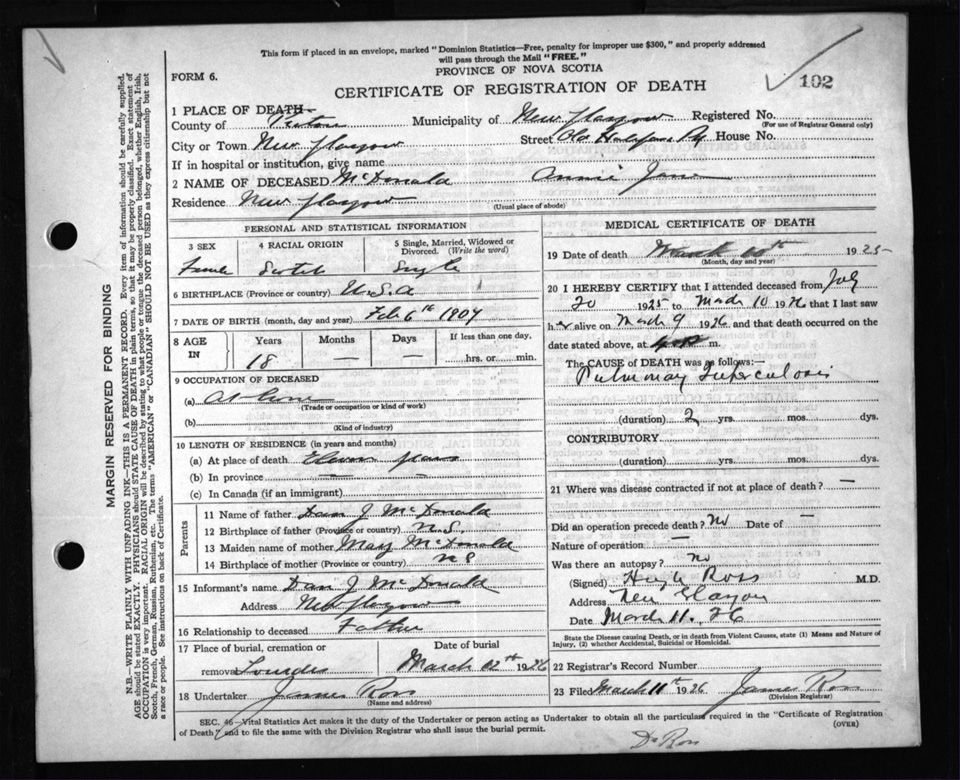 This form if placed in an envelope, marked "Dominion Statistics—Free, penalty for improper use $300," and properly addressed
will pass through the Mail "FREE."
PROVINCE OF NOVA SCOTIA
FORM 6.
CERTIFICATE OF REGISTRATION OF DEATH
102
1 PLACE OF DEATH—
County of Pictou Municipality of New Glasgow Registered No.
(For use of Registrar General only)
City or Town New Glasgow Street Old Halifax Rd House No.
If in hospital or institution, give name
2 NAME OF DECEASED McDonald Annie Jane
Residence New Glasgow
(Usual place of abode)
PERSONAL AND STATISTICAL INFORMATION
3 SEX 4 RACIAL ORIGIN 5 Single, Married, Widowed or Divorced. (Write the word)
Female Scotch Single
6 BIRTHPLACE (Province or country) U.S.A
7 DATE OF BIRTH (month, day and year) Feb 6th 1907
8 AGE IN Years Months Days If less than one day,
18 — — hrs. or min.
9 OCCUPATION OF DECEASED
(a) At Home
(Trade or occupation or kind of work)
(b)
(Kind of industry)
10 LENGTH OF RESIDENCE (in years and months)
(a) At place of death Eleven years
(b) In province —
(c) In Canada (if an immigrant)
Parents
11 Name of father Dan J McDonald
12 Birthplace of father (Province or country) N.S.
13 Maiden name of mother Mary McDonald
14 Birthplace of mother (Province or country) N S
15 Informant's name Dan J McDonald
Address New Glasgow
16 Relationship to deceased Father
17 Place of burial, cremation or removal Lourdes Date of burial March 12th 1926
18 Undertaker James Ross
(Name and address)
MEDICAL CERTIFICATE OF DEATH
19 Date of death March 10th 1925
(Month, day and year)
20 I HEREBY CERTIFY that I attended deceased from July
20 1925 to March 10 1926 that I last saw
her alive on March 9 1926 and that death occurred on the
date stated above, at m.
The CAUSE of DEATH was as follows:—
Pulmonary Tuberculosis
(duration) 2 yrs. mos. dys.
CONTRIBUTORY
(duration) yrs. mos. dys.
21 Where was disease contracted if not at place of death? —
Did an operation precede death? No Date of —
Nature of operation —
Was there an autopsy? no
(Signed) Hugh Ross M.D.
Address New Glasgow
Date March 11. 26
State the Disease causing Death, or in death from Violent Causes, state (1) Means and Nature of
Injury, (2) whether Accidental, Suicidal or Homicidal.
22 Registrar's Record Number
23 Filed March 11th 1926 James Ross
(Division Registrar)
SEC. 46—Vital Statistics Act makes it the duty of the Undertaker or person acting as Undertaker to obtain all the particulars required in the "Certificate of Registration
of Death" and to file the same with the Division Registrar who shall issue the burial permit.
(OVER)
Dr Ross
MARGIN RESERVED FOR BINDING
N.B.—WRITE PLAINLY WITH UNFADING INK—THIS IS A PERMANENT RECORD. Every item of information should be carefully supplied.
AGE should be stated EXACTLY. PHYSICIANS should STATE CAUSE OF DEATH in plain terms, so that it may be properly classified. Exact statement of
OCCUPATION is very important. RACIAL ORIGIN will be described by stating to what people or tongue the deceased person belonged, whether English, Irish,
Scotch, French, German, Russian, Ruthenian, etc. The terms "AMERICAN" or "CANADIAN" SHOULD NOT BE USED as they express citizenship but not
a race or people. See instructions on back of Certificate.